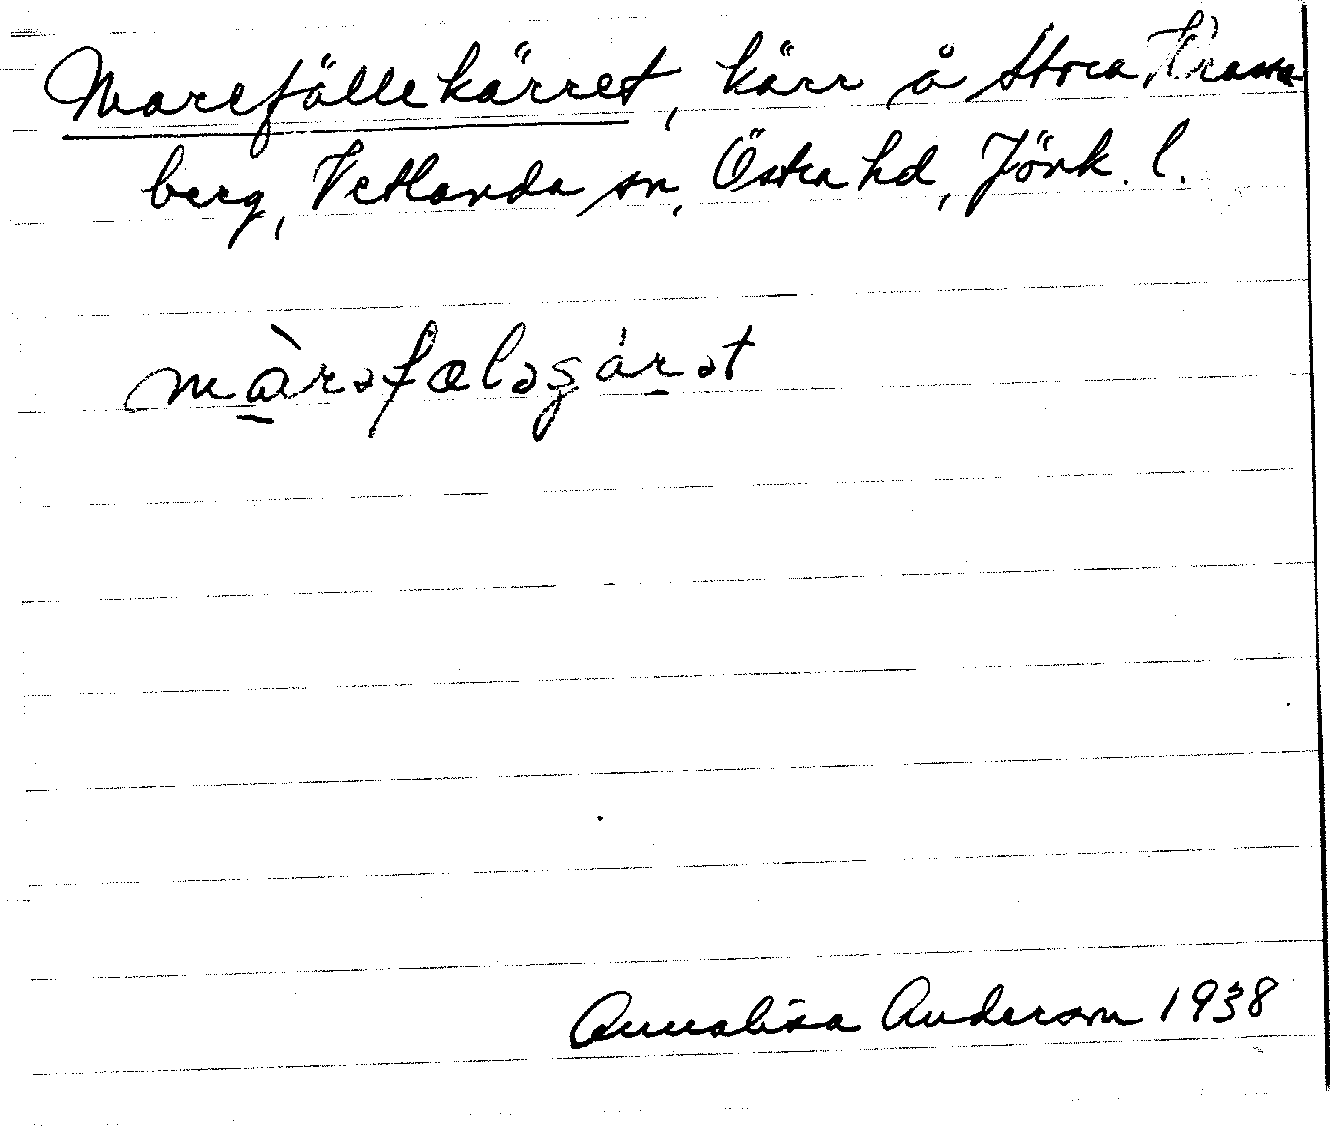 Marefällekärret, kärr å Stora
berg, Vetlanda sn, Östra hd, Jönk. l.
màrəfæləgárət
Annalisa Anderson 1938